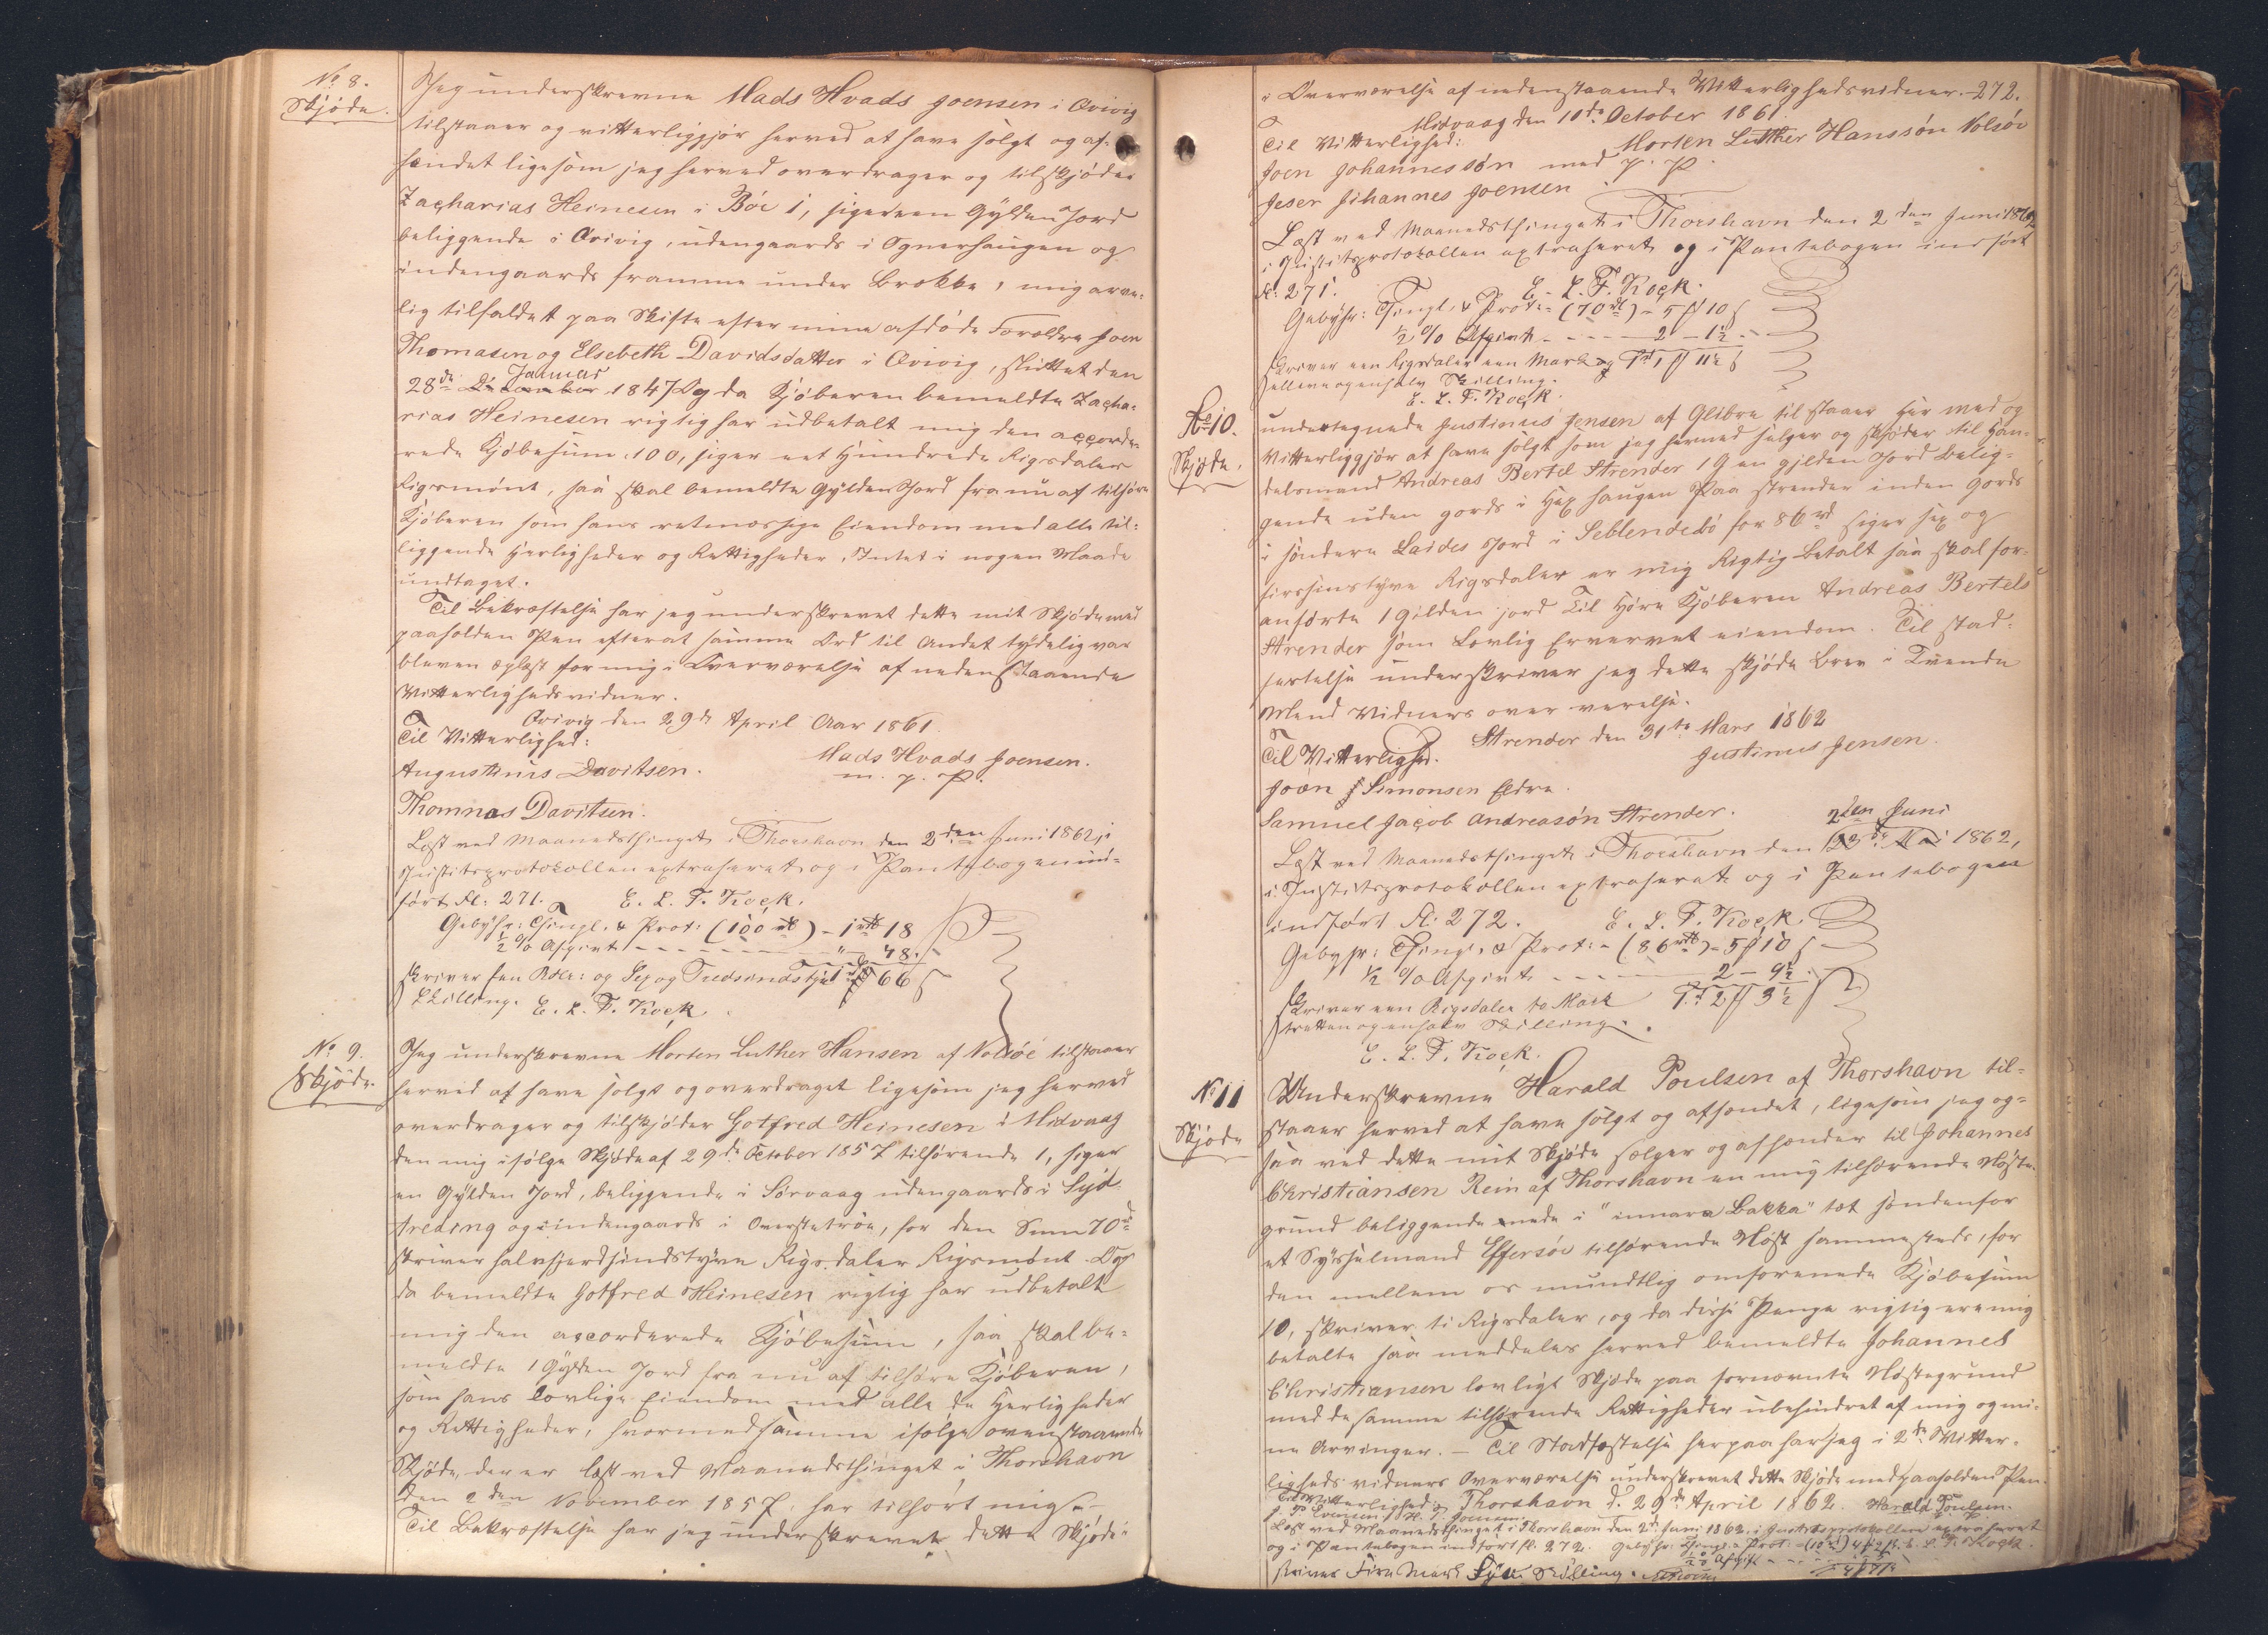 No 8.
Skjøde.
Jeg underskrevne Mads Hvads Joensen i Qvivig
tilstaaer og vitterliggjør herved at have solgt og af-
hændet ligesom jeg herved overdrager og tilskjøder
Zacharias Heinesen i Bøe 1, siger een Gylden Jord
beliggende i Qvivig, udengaards i Ognerhaugen og
indengaards framme under Brekke, mig arve-
lig tilfaldet paa Skifte efter mine afdøde Forældre Joen
Thomasen og Elsebeth Davidsdatter i Qvivig, sluttet den
28de Januar 1847. Og da Kjøberen bemeldte Zacha-
rias Heinesen rigtig har udbetalt mig den accorde-
rede Kjøbesum 100, siger eet Hundrede Rigsdaler
Rigsmønt, saa skal bemeldte Gylden Jord fra nu af tilhøre
Kjøberen som hans retmæssige Eiendom med alle til-
liggende Herligheder og Rettigheder, Intet i nogen Maade
undtaget.
Til Bekræftelse har jeg underskrevet dette mit Skjøde med
paaholden Pen efterat samme Ord til Andet tydelig var
bleven oplæst for mig i Overværelse af nedenstaaende
Vitterlighedsvidner.
Qvivig den 29de April Aar 1861.
Til Vitterlighed:
Mads Hvads Joensen.
m. p. P.
Augustinus Davitsen.
Thomas Davitsen.
Læst ved Maanedsthinget i Thorshavn den 2den Juni 1862, i
Justitsprotokollen extraheret og i Pantebogen ind-
ført Fl: 271. E. L. F. Kock.
Gebyhr: Thingl. & Prot: (100 rd) - 1 rd 18
1/2 % Afgivt - - - - " - 48.
1 rd 66 s
skriver een Rdlr: og Sex og Tredsindstyve
Skilling. E. L. F. Kock
No 9.
Skjøde.
Jeg underskrevne Morten Luther Hansen af Nolsøe tilstaaer
herved at have solgt og overdraget ligesom jeg herved
overdrager og tilskjøder Gotfred Heinesen i Midvaag
den mig ifølge Skjøde af 29de October 1857 tilhørende 1, siger
en Gylden Jord, beliggende i Sørvaag udengaards i Syd-
treding og indengaards i Overstetrøe, for den Sum 70 rd
skriver halvfjerdsindstyve Rigsdaler Rigsmønt. Og
da bemeldte Gotfred Heinesen rigtig har udbetalt
mig den accorderede Kjøbesum, saa skal be-
meldte 1 Gylden Jord fra nu af tilhøre Kjøberen,
som hans lovlige Eiendom med alle de Herligheder
og Rettigheder, hvormed samme ifølge ovenstaaende
Skjøde, der er læst ved Maanedsthinget i Thorshavn
den 2den November 1857, har tilhørt mig.
Til Bekræftelse har jeg underskrevet dette Skjøde
i Overværelse af nedenstaaende Vitterlighedsvidner. 272.
Midvaag den 10de October 1861.
Til Vitterlighed:
Morten Luther Hanssøn Nolsøe
Joen Johannessøn med p. P.
Jeser Jihannes Joensen
Læst ved Maanedsthinget i Thorshavn den 2den Juni 1862
i Justitsprotokollen extraheret og i Pantebogen indført
Fl: 271. E. L. F. Kock.
Gebyhr: Thingl. & Prot: (70 rd) - 5 ß 10 s
1/2 % Afgivt - - - - 2 - 1 1/2
1 rd 1 ß 11 1/2 s
skriver een Rigsdaler een Mark og
elleve og en halv Skilling.
E. L. F. Kock.
No 10.
Skjøde.
undertegnede Justinus Jensen af Glibre til staaer Her med og
Vitterliggjør at have solgt som jeg hermed sælger og skjøder til Han-
delsmand Andreas Bertel Strender 1 G en gylden Jord belig-
gende uden gords i Hex haugen Paa strender inden gords
i søndere Laides Jord i Seblendebø for 86 rd siger sex og
firssinstyve Rigsdaler er mig Rigtig betalt saa skal for-
anførte 1 Gilden jord Til Høre Kjøberen Andreas Bertels
Strender som Lovlig Ervervet eiendom. Til stad-
festelse underskriver jeg dette skjøde brev i Tvende
Mend Vidners over verelse.
Strender den 31te Mars 1862
Til Vitterlighed.
Justinus Jensen.
Joen J Simonsen Eldre.
Samuel Jacob Andreasøn Strender.
2den Juni
Læst ved Maanedsthinget i Thorshavn den 23de Mai 1862,
i Justitsprotokollen extraheret og i Pantebogen
indført Fl. 272. E. L. F. Kock.
Gebyhr: Thingl. & Prot: - (86 rd) - 5 ß 10 s
1/2 % Afgivt - - - - 2 - 9 1/2
1 rd 2 ß 3 1/2 s
skriver een Rigsdaler to Mark
tretten og en halv Skilling.
E. L. F. Kock.
No 11
Skjøde
Underskrevne Harald Poulsen af Thorshavn til-
staaer herved at have solgt og afhændet, ligesom jeg og-
saa ved dette mit Skjøde sælger og afhænder til Johannes
Christiansen Rein af Thorshavn en mig tilhørende Nøste-
grund beliggende nede i "innara Bakka" tæt søndenfor
et Sysselmand Effersøe tilhørende Nøst sammesteds, for
den mellem os mundtlig omforenede Kjøbesum
10, skriver ti Rigsdaler, og da disse Penge rigtig ere mig
betalte saa meddeles herved bemeldte Johannes
Christiansen lovligt Skjøde paa fornævnte Nøstegrund
med de samme tilhørende Rettigheder ubehindret af mig og mi-
ne Arvinger. - Til Stadfæstelse herpaa har jeg i 2de Vitter-
ligheds vidners Overværelse underskrevet dette Skjøde med paaholden Pen.
Til Vitterlighed: Thorshavn d. 29de April 1862. Harald Poulsen.
Læst ved Maanedsthinget i Thorshavn den 2de Juni 1862. i Justitsprotokollen extraheret
og i Pantebogen indført fl. 272. Gebyhr: Thingl. & Prot: E. L. F. Kock.
1/2 % Afgift
skriver Fire Mark Syv Skilling.